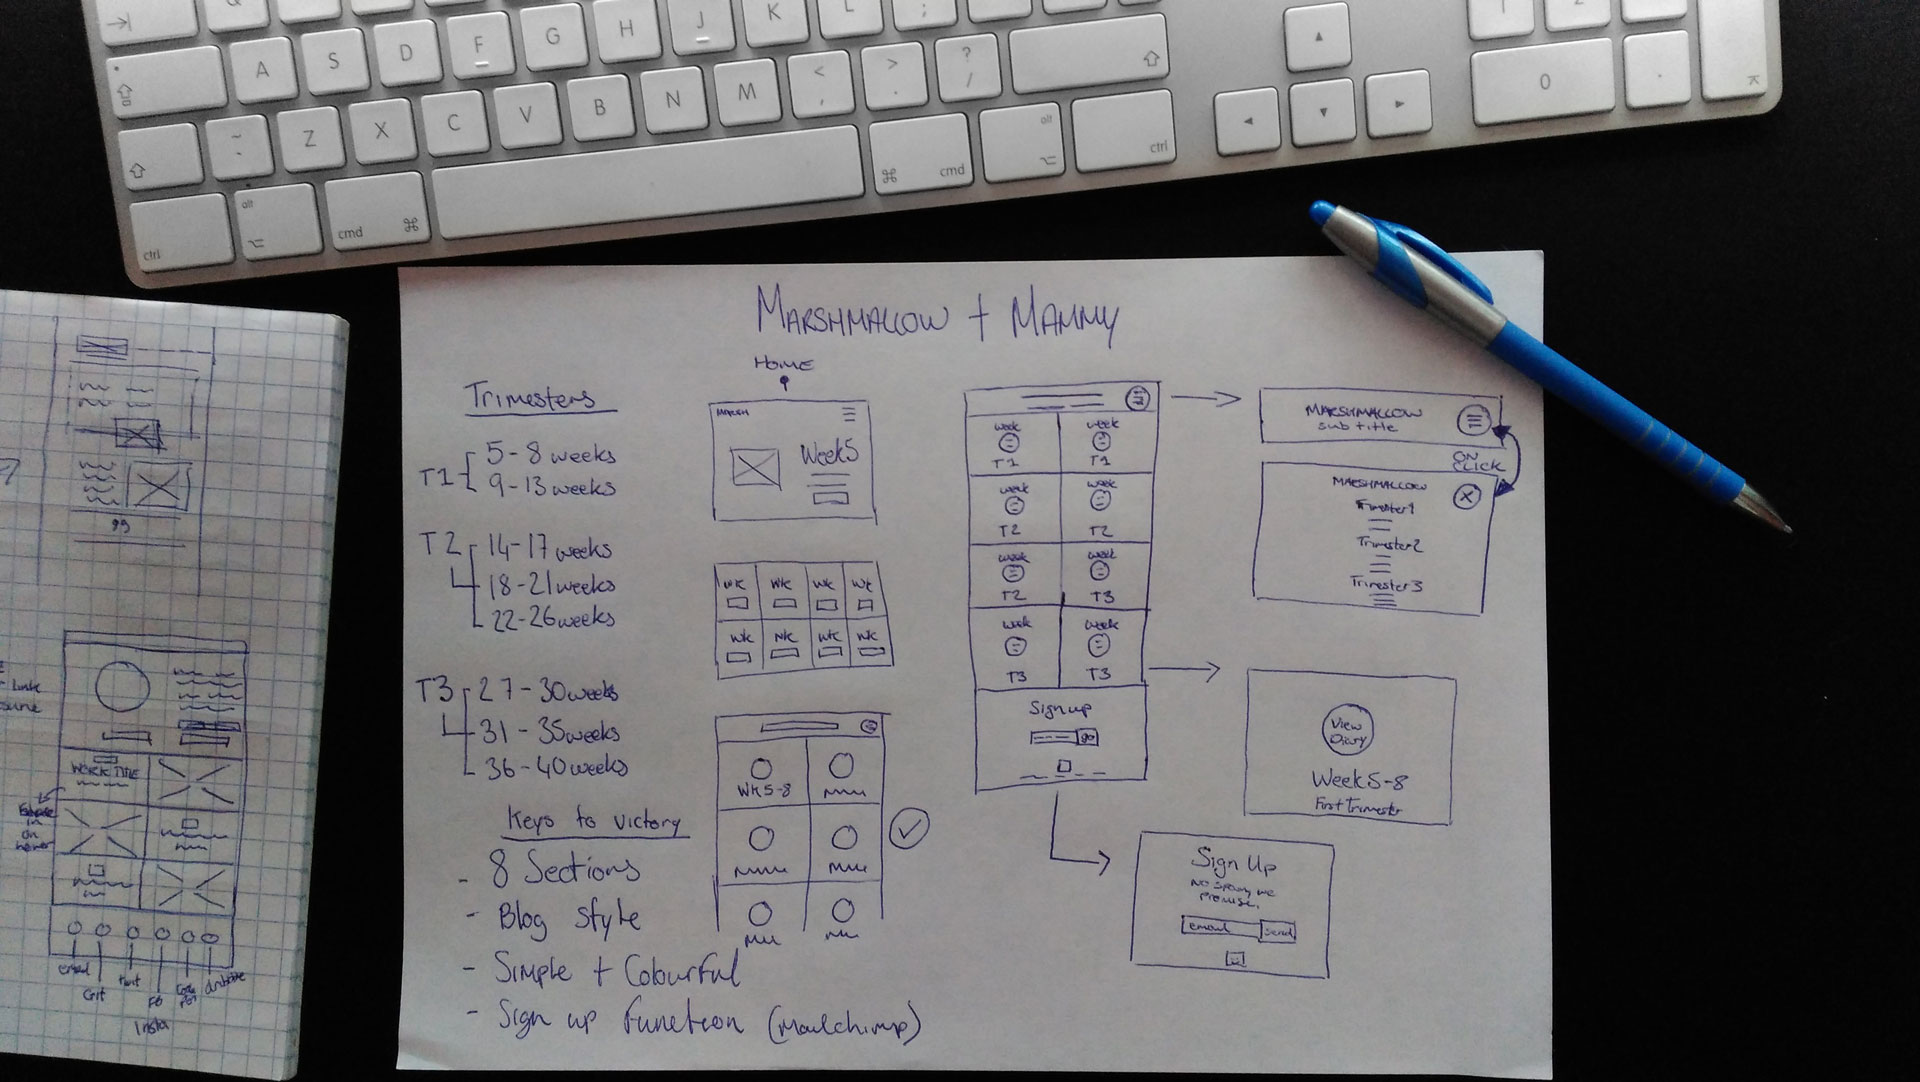 Q
A S D F G H J K L ;
Z X C V B N M < , > . ? /
~
alt
ctrl
cmd ⌘
⌘ cmd
alt
ctrl
1 2
0 .
MARSHMALLOW + MAMMY
Trimesters
T1 5-8 weeks
9-13 weeks
T2 14-17 weeks
18-21 weeks
22-26 weeks
T3 27-30 weeks
31-35 weeks
36-40 weeks
Keys to victory
- 8 Sections
- Blog style
- Simple + Colourful
- Sign up function (mailchimp)
HOME
MARSH
Week 5
WK WK WK WK
WK WK WK WK
WK 5-8
week week
T1 T1
week week
T2 T2
week week
T2 T3
week week
T3 T3
Sign up
go
MARSHMALLOW
sub title
ON
CLICK
MARSHMALLOW
Trimester 1
Trimester 2
Trimester 3
View
Diary
Week 5-8
First Trimester
Sign Up
No spam, we
promise.
email send
WORK TITLE
email
Git
FB
Insta